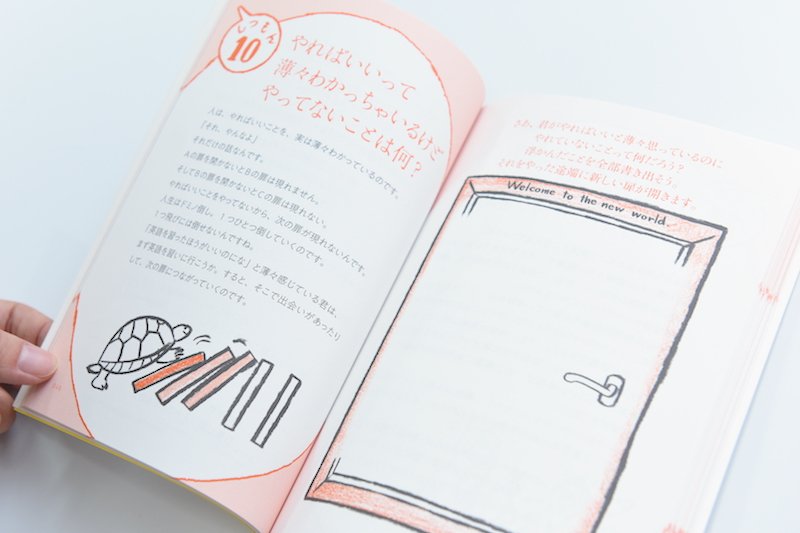 しつもん
10
やればいいって
薄々わかっちゃいるけど
やってないことは何?
人は、やればいいことを、実は薄々わかっているのです。
「それ、やんなよ」
それだけの話なんです。
Aの扉を開かないとBの扉は現れません。
そしてBの扉を開かないとCの扉は現れない。
やればいいことをやってないから、次の扉が現れないんです。
人生はドミノ倒し。1つひとつ倒していくのです。
1つ飛びには倒せないんですね。
「英語を習ったほうがいいのにな」と薄々感じている君は、
まず英語を習いに行こうか。すると、そこで出会いがあったり
して、次の扉につながっていくのです。
さあ、君がやればいいと薄々思っているのに
やれていないことって何だろう?
浮かんだことを全部書き出そう。
それをやった途端に新しい扉が開きます。
Welcome to the new world.